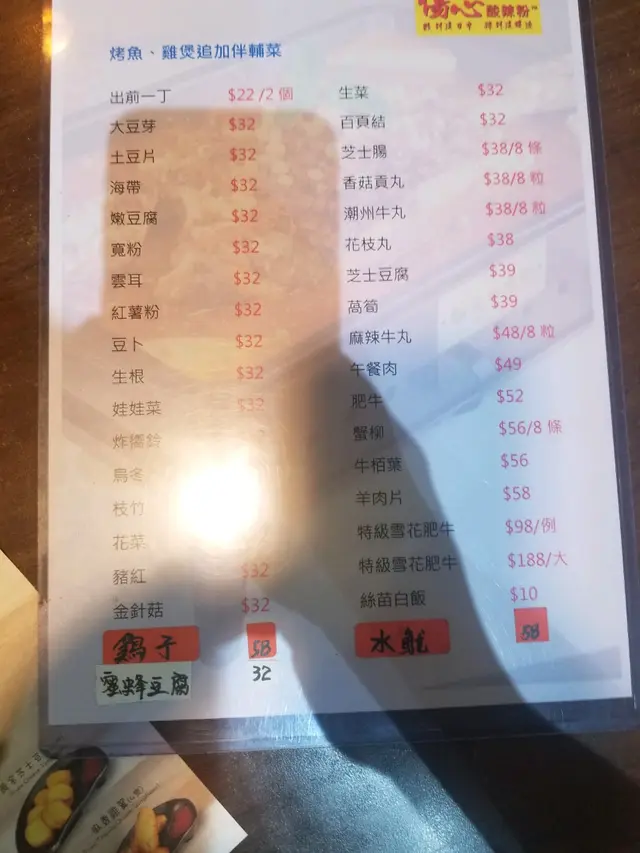 傷心酸辣粉
烤魚、雞煲追加伴輔菜
出前一丁 $22 /2 個
大豆芽 $32
土豆片 $32
海帶 $32
嫩豆腐 $32
寬粉 $32
雲耳 $32
紅薯粉 $32
豆卜 $32
生根 $32
娃娃菜 $32
炸響鈴
烏冬
枝竹
花菜
豬紅 $32
金針菇 $32
58
豆腐 32
生菜 $32
百頁結 $32
芝士腸 $38/8 條
香菇貢丸 $38/8 粒
潮州牛丸 $38/8 粒
花枝丸 $38
芝士豆腐 $39
萵筍 $39
麻辣牛丸 $48/8 粒
午餐肉 $49
肥牛 $52
蟹柳 $56/8 條
牛栢葉 $56
羊肉片 $58
特級雪花肥牛 $98/例
特級雪花肥牛 $188/大
絲苗白飯 $10
水魷 58